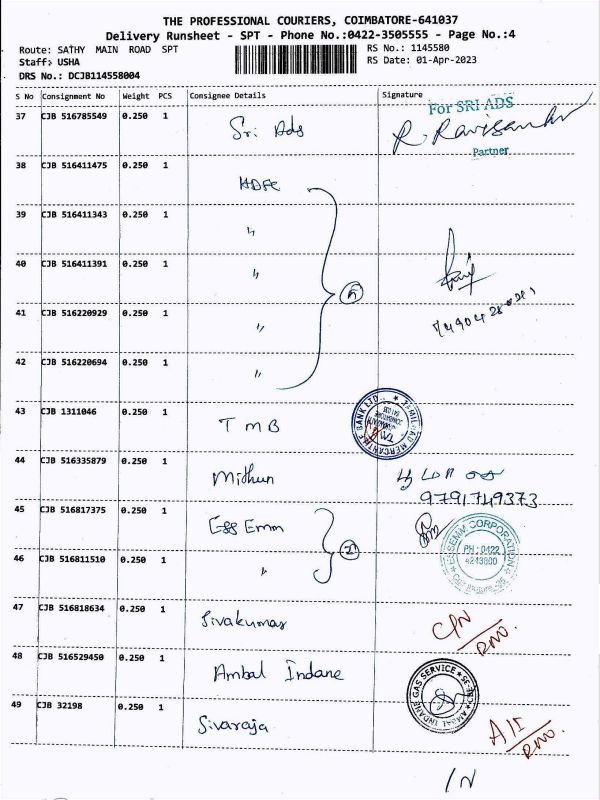 THE PROFESSIONAL COURIERS, COIMBATORE-641037
Delivery Runsheet - SPT - Phone No.:0422-3505555 - Page No.:4
Route: SATHY MAIN ROAD SPT
RS No.: 1145580
Staff: USHA
RS Date: 01-Apr-2023
DRS No.: DCJB114558004
S No Consignment No Weight PCS Consignee Details Signature
37 CJB 516785549 0.250 1 Sri Ads
For SRI ADS
R. Ravisankar
Partner
38 CJB 516411475 0.250 1 HDFC
39 CJB 516411343 0.250 1 "
40 CJB 516411391 0.250 1 "
5
41 CJB 516220929 0.250 1 "
42 CJB 516220694 0.250 1 "
43 CJB 1311046 0.250 1 TMB
TAMILNAD MERCANTILE BANK LTD.
44 CJB 516335879 0.250 1 Mithun
9791749373
45 CJB 516817375 0.250 1 Ess Emm
2
ESSEMM CORPORATION
PH : 0422
4243800
46 CJB 516811510 0.250 1 "
47 CJB 516818634 0.250 1 Sivakumar
C/N
RNO.
48 CJB 516529450 0.250 1 Ambal Indane
AMBAL INDANE GAS SERVICE
49 CJB 32198 0.250 1 Sivaraja
RNO.
/N